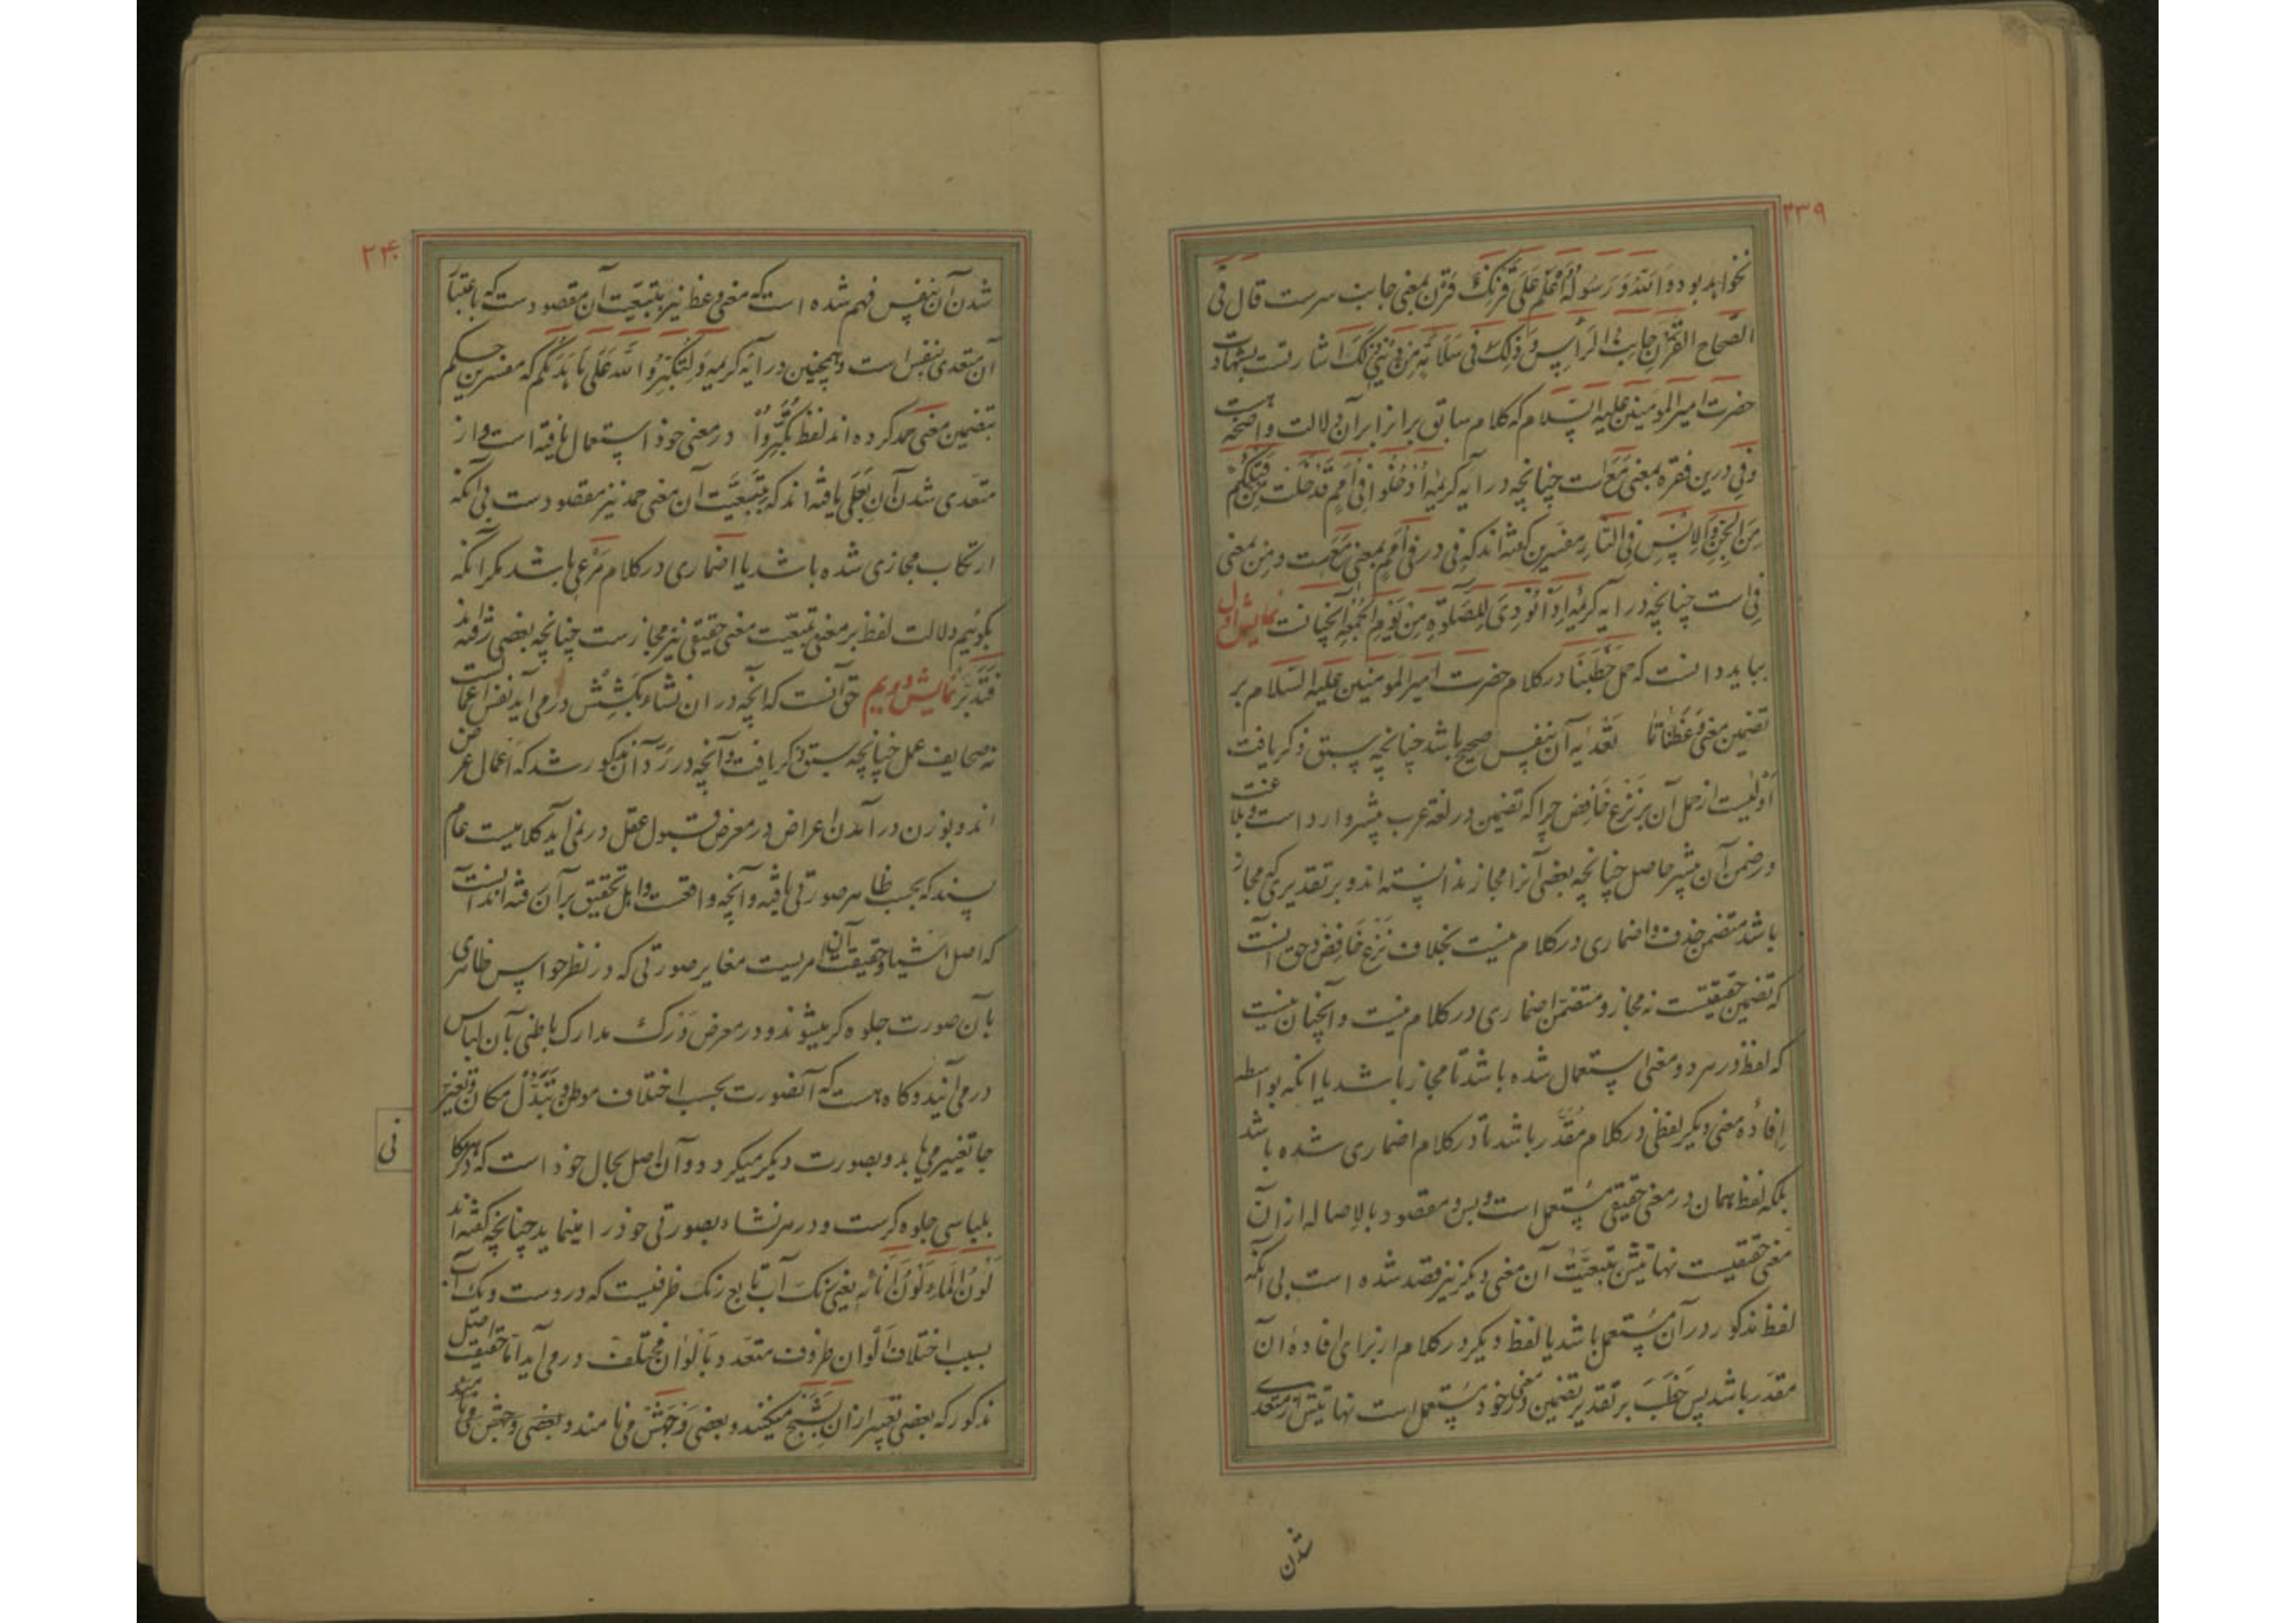 ۲۳۹
نخواهد بود و الله و رسوله اعلم علی قرنک قرن بمعنی جانب سرست قال فی
الصحاح القرن جانب الرأس و ذلک فی سلامة من دینک اشارتست بشهادت
حضرت امیر المومنین علیه السلام که کلام سابق بر انرا بر آن دلالت واضحه هست
و فی درین فقره بمعنی مَعَ است چنانچه در آیه کریمه اُدْخُلُوا فی اُمَمٍ قَدْ خَلَتْ مِنْ قَبْلِکُمْ
مِنَ الجِنِّ وَ الاِنْسِ فِی النّارِ مفسرین گفته اند که فی در فی اُمَمٍ بمعنی مَعَ ست و من بمعنی
فی است چنانچه در آیه کریمه اِذا نُودِیَ لِلصَّلوةِ مِنْ یَوْمِ الجُمُعَةِ آنچنانست نمایش اول
بباید دانست که حمل خَطَبَنا در کلام حضرت امیر المومنین علیه السلام بر
تضمین معنی وَعَظَنا تا تعدیه آن بنفس صحیح باشد چنانچه سبق ذکر یافت
اَوْلیست از حمل آن بر نزع خافض چرا که تضمین در لغة عرب بیشتر وارد است و بلاغت
در ضمن آن بیشتر حاصل چنانچه بعضی آنرا مجاز ندانسته اند و بر تقدیری که مجاز
باشد متضمن حذف و اضماری در کلام نیست بخلاف نزع خافض و حق آنست
که تضمین حقیقتست نه مجاز و متضمن اضماری در کلام نیست و آنچنان نیست
که لفظ در هر دو معنی استعمال شده باشد تا مجاز باشد یا انکه بواسطه
اِفادهٔ معنی دیگر لفظی در کلام مُقَدَّر باشد تا در کلام اضماری شده باشد
بلکه لفظ همان در معنی حقیقی مُستعمل است و بس و مقصود بالاصاله از ان
معنی حقیقیست نهایتش بتبعیّت آن معنی دیگر نیز قصد شده است بی انکه
لفظ مذکور در آن مُستعمل باشد یا لفظ دیگر در کلام از برای افادهٔ ان
مقدّر باشد پس خَطَبَ بر تقدیر تضمین در معنی خود مستعمل است نهایتش از متعدی
شدن
۲۴۰
شدن آن بنفس فهم شده است که معنی وعظ نیز بتبعیّت آن مقصود ست که باعتبار
آن متعدی بنفس است و همچنین در آیه کریمه وَ لِتُکَبِّرُوا اللهَ عَلی ما هَدیکُمْ که مفسرین حکم
بتضمین معنی حمد کرده اند لفظ تُکَبِّرُوا در معنی خود استعمال یافته است و از
متعدی شدن آن بِعَلی یافته اند که بتَبَعیَّت آن معنی حمد نیز مقصود ست بی آنکه
ارتکاب مجازی شده باشد یا اضماری در کلام مَرْعی باشد مکر آنکه
بگوئیم دلالت لفظ بر معنی بتبعیّت معنی حقیقی نیز مجاز ست چنانچه بعضی رفته اند
فَتَدَبَّر نمایش دویم حق آنست که آنچه در ان نشاء بکَشِش در می آید نفس اعمالست
نه صحایف عمل چنانچه سبق ذکر یافت و آنچه در رد آن مذکور شد که اعمال عرض
اند و بوزن در آمدن اعراض در معرض قبول عقل در نمی آید کلامیست عام
پسند که بحسب ظاهر صورتی یافته و آنچه واقعست و اهل تحقیق برآن رفته اند آنست
که اصل اشیا و حقیقت آن امریست مغایر صورتی که در نظر حواس ظاهری
بآن صورت جلوه گر میشوند و در معرض دَرْک مدارک باطنی بآن لباس
در می آیند و کاه هست که آنصورت بحسب اختلاف موطن و تبدّل مکان و تغییر
جا تغییر می یابد و بصورت دیگر میگردد و آن اصل بحال خود است که در هر مکان
نی
بلباسی جلوه گرست و در هر نشاء بصورتی خود را مینماید چنانچه گفته اند
لَوْنُ الماءِ لَوْنُ اِنائِه یعنی رنک آب تابع رنک ظرفیست که دروست و رنک آب
بسبب اختلاف اَلْوان ظروف متعدد بِاَلْوان مختلف در می آید امّا حقیقت اصل
مذکور که بعضی تعبیر از ان بِشَبَح میکنند و بعضی وَجْهَش می نامند و بعضی